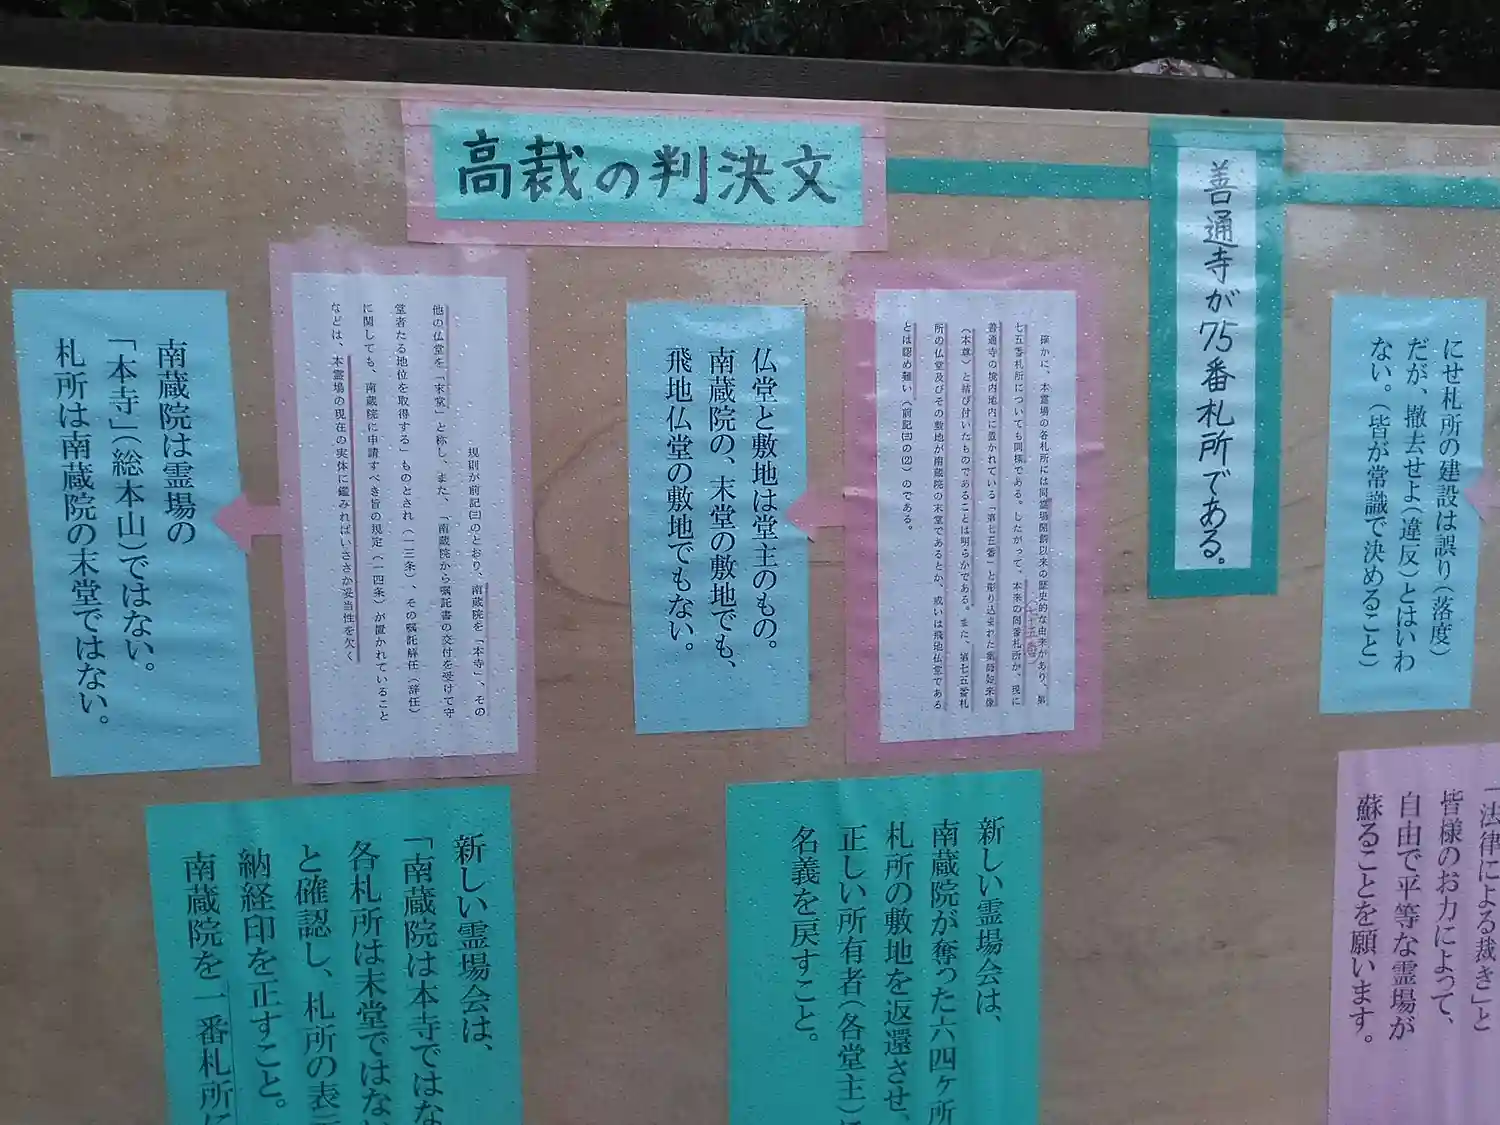 高裁の判決文
善通寺が75番札所である。
にせ札所の建設は誤り(落度)
だが、撤去せよ(違反)とはいわ
ない。(皆が常識で決めること)
確かに、本霊場の各札所には同霊場開創以来の歴史的な由来があり、第
七五番札所についても同様である。したがって、本来の同番札所が、現に
善通寺の境内地内に置かれている「第七五番」と彫り込まれた薬師如来像
(本尊)と結び付いたものであることは明らかである。また、第七五番札
所の仏堂及びその敷地が南蔵院の末堂であるとか、或いは飛地仏堂である
とは認め難い(前記㈢の(2))のである。
仏堂と敷地は堂主のもの。
南蔵院の、末堂の敷地でも、
飛地仏堂の敷地でもない。
規則が前記㈢のとおり、南蔵院を「本寺」、その
他の仏堂を「末堂」と称し、また、「南蔵院から嘱託書の交付を受けて守
堂者たる地位を取得する」ものとされ(一三条)、その嘱託解任(辞任)
に関しても、南蔵院に申請すべき旨の規定(一四条)が置かれていること
などは、本霊場の現在の実体に鑑みればいささか妥当性を欠く
南蔵院は霊場の
「本寺」(総本山)ではない。
札所は南蔵院の末堂ではない。
「法律による裁き」と
皆様のお力によって、
自由で平等な霊場が
蘇ることを願います。
新しい霊場会は、
南蔵院が奪った六四ヶ所
札所の敷地を返還させ、
正しい所有者(各堂主)に
名義を戻すこと。
新しい霊場会は、
「南蔵院は本寺ではな
各札所は末堂ではない
と確認し、札所の表示
納経印を正すこと。
南蔵院を一番札所に